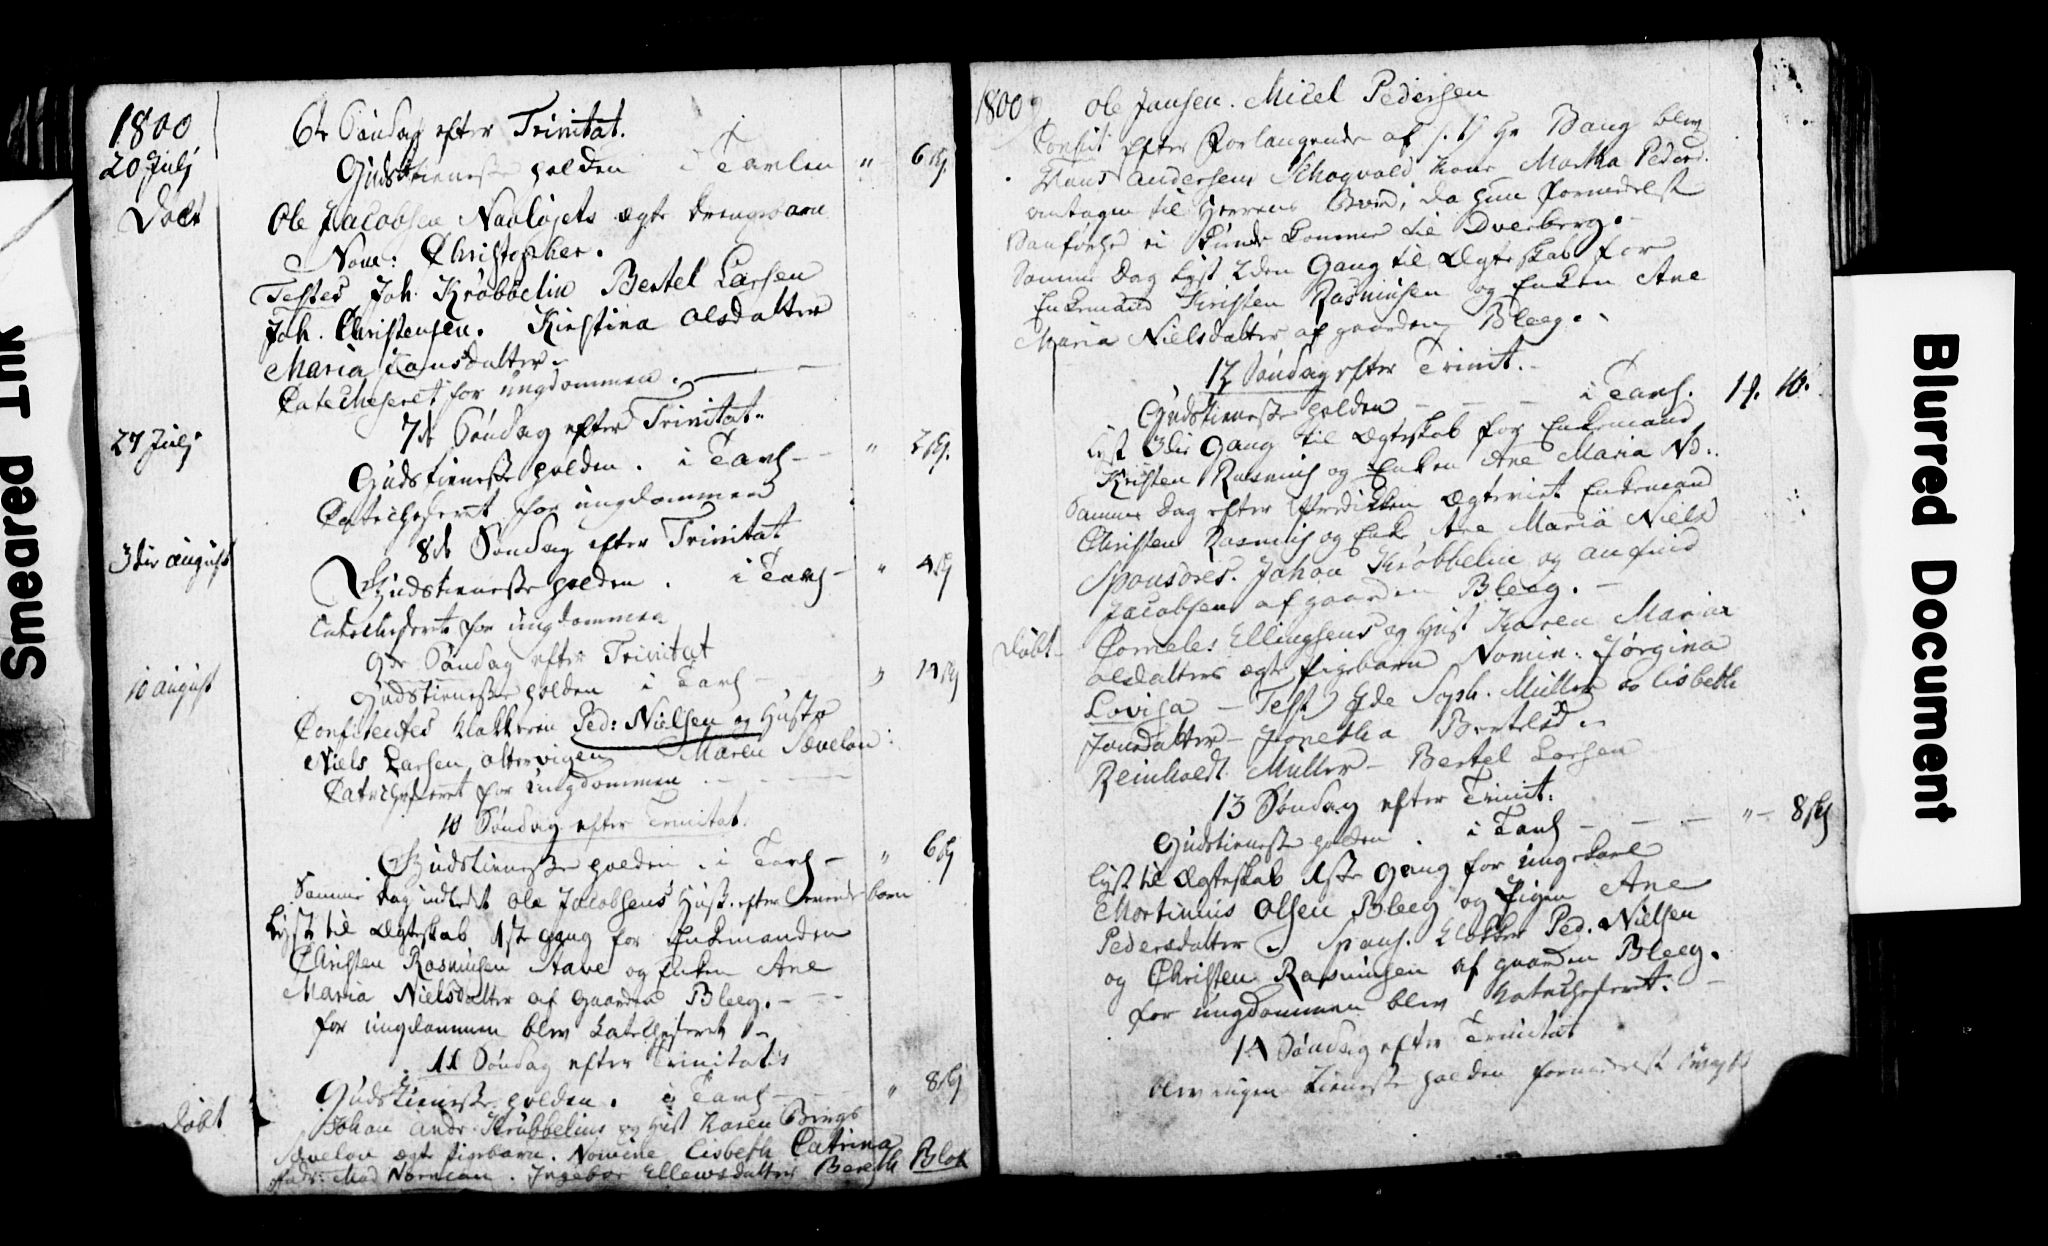 Smeared Ink
1800
6te Søndag efter Trinitat.
20 Julj
Gudstieneste holden i Tavlen " 6 ß.
Døbt
Ole Jacobsen Navløsets ægte drengebarn
Nom: Christopher.
Testes Joh. Krøbbelin Bertel Larsen
Joh. Christensen. Kirstina Olsdatter
Maria Hansdatter
Catechiseret for ungdommen.
7de Søndag efter Trinitat.
27 Julj
Gudstieneste holden. i Tavl - " 2 ß.
Catechiseret for ungdommen
8de Søndag efter Trinitat
3die august
Gudstieneste holden. i Tavl - " 4 ß
Catechiseret for ungdommen
9de Søndag efter Trinitat
10 august
Gudstieneste holden i Tavl - " 14 ß
Confitentes Klokkeren Ped: Nielsen og Hustr
Niels Larsen Alterviigen Maren Sævelon:
Catechiseret for ungdommen
10 Søndag efter Trinitat.
Gudstieneste holden. i Tavl - " 6 ß
Samme Dag indledt Ole Jacobsens Hust. efter barn
Lyst til Ægteskab 1ste gang for Enkemanden
Christen Rasmusen Aave og Enken Ane
Maria Nielsdatter af Gaarden Bleeg. -
for ungdommen blev Catechiseret -
11 Søndag efter Trinitatis
Gudstieneste holden. i Tavl - " 8 ß
Døbt
Johan Andr: Krøbbelins og Hust Karen Brings
Sævelon ægte Pigebarn. Nomine Lisbeth Catrina
Fadr: Mad Norman. Ingebor Ellewsdatter Bereth Blok
1800
Ole Jansen. Micel Pedersen
Confit efter Forlangende af Hr Bang blev
Hans Andersens Schogvold Kone Martha Peders.
antagen til Herrens Bord, da hun formedelst
Vanførhed ei kunde komme til Dverberg. -
Samme Dag lyst 2den Gang til Ægteskab for
Enkemand Christen Rasmusen og Enken Ane
Maria Nielsdatter af gaarden Bleeg.
12 Søndag efter Trinit.
Gudstieneste holden - - - i Tavl. 1 . 10.
Lyst 3die Gang til Ægteskab for Enkemand
Kristen Rasmus og Enken Ane Maria N.
Samme Dag efter Prædikken Ægteviet Enkemand
Christen Rasmus og Enke Ane Maria Niels
Sponsores. Johan Krøbbelin og
Jacobsen af gaarden Bleeg. -
Døbt -
Corneles Ellingsens og Hust Karen Maria
Olsdatters ægte Pigebarn Nomin: Jørgina
Lovisa - Test Soph. Müller og Lisbeth
Jonsdatter - Jonetha Bertelsd -
Reinholdt Müller - Bertel Larsen
13 Søndag efter Trinit:
Gudstieneste holden. i Tavl - - - " - 8 ß
Lyst til Ægteskab 1ste Gang for ungkarl
Mortinus Olsen Bleeg og Pigen Ane
Pedersdatter Spons. Klokker Ped. Nielsen
og Christen Rasmusen af gaarden Bleeg.
for ungdommen blev Katechiseret.
14 Søndag efter Trinitat
blev ingen tieneste holden formedelst
Blurred Document